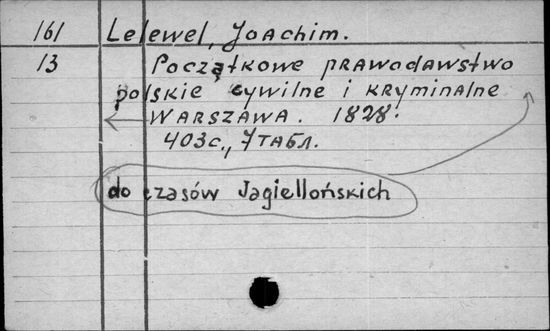 161 Lelewel, Joachim.
13 Początkowe prawodawstwo
polskie cywilne i kryminalne
Warszawa. 1828.
403с., 7 табл.
do czasów Jagiellońskich